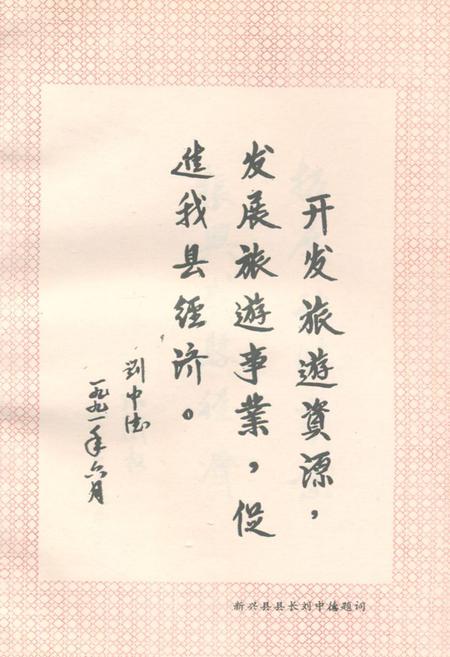 开发旅遊資源，
发展旅遊事業，促
進我县经济。
刘中德
一九九一年六月
新兴县县长刘中德题词